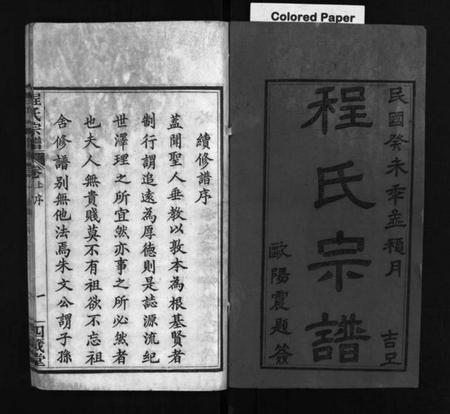 Colored Paper
民國癸未年孟穐月
吉旦
程氏宗譜
歐陽震題簽
續修譜序
蓋聞聖人垂教以敦本為根基賢者
制行謂追遠為厚德則是誌源流紀
世澤理之所宜然亦事之所必然者
也夫人無貴賤莫不有祖欲不忘祖
舍修譜別無他法焉朱文公謂子孫
程氏宗譜
卷上序
一